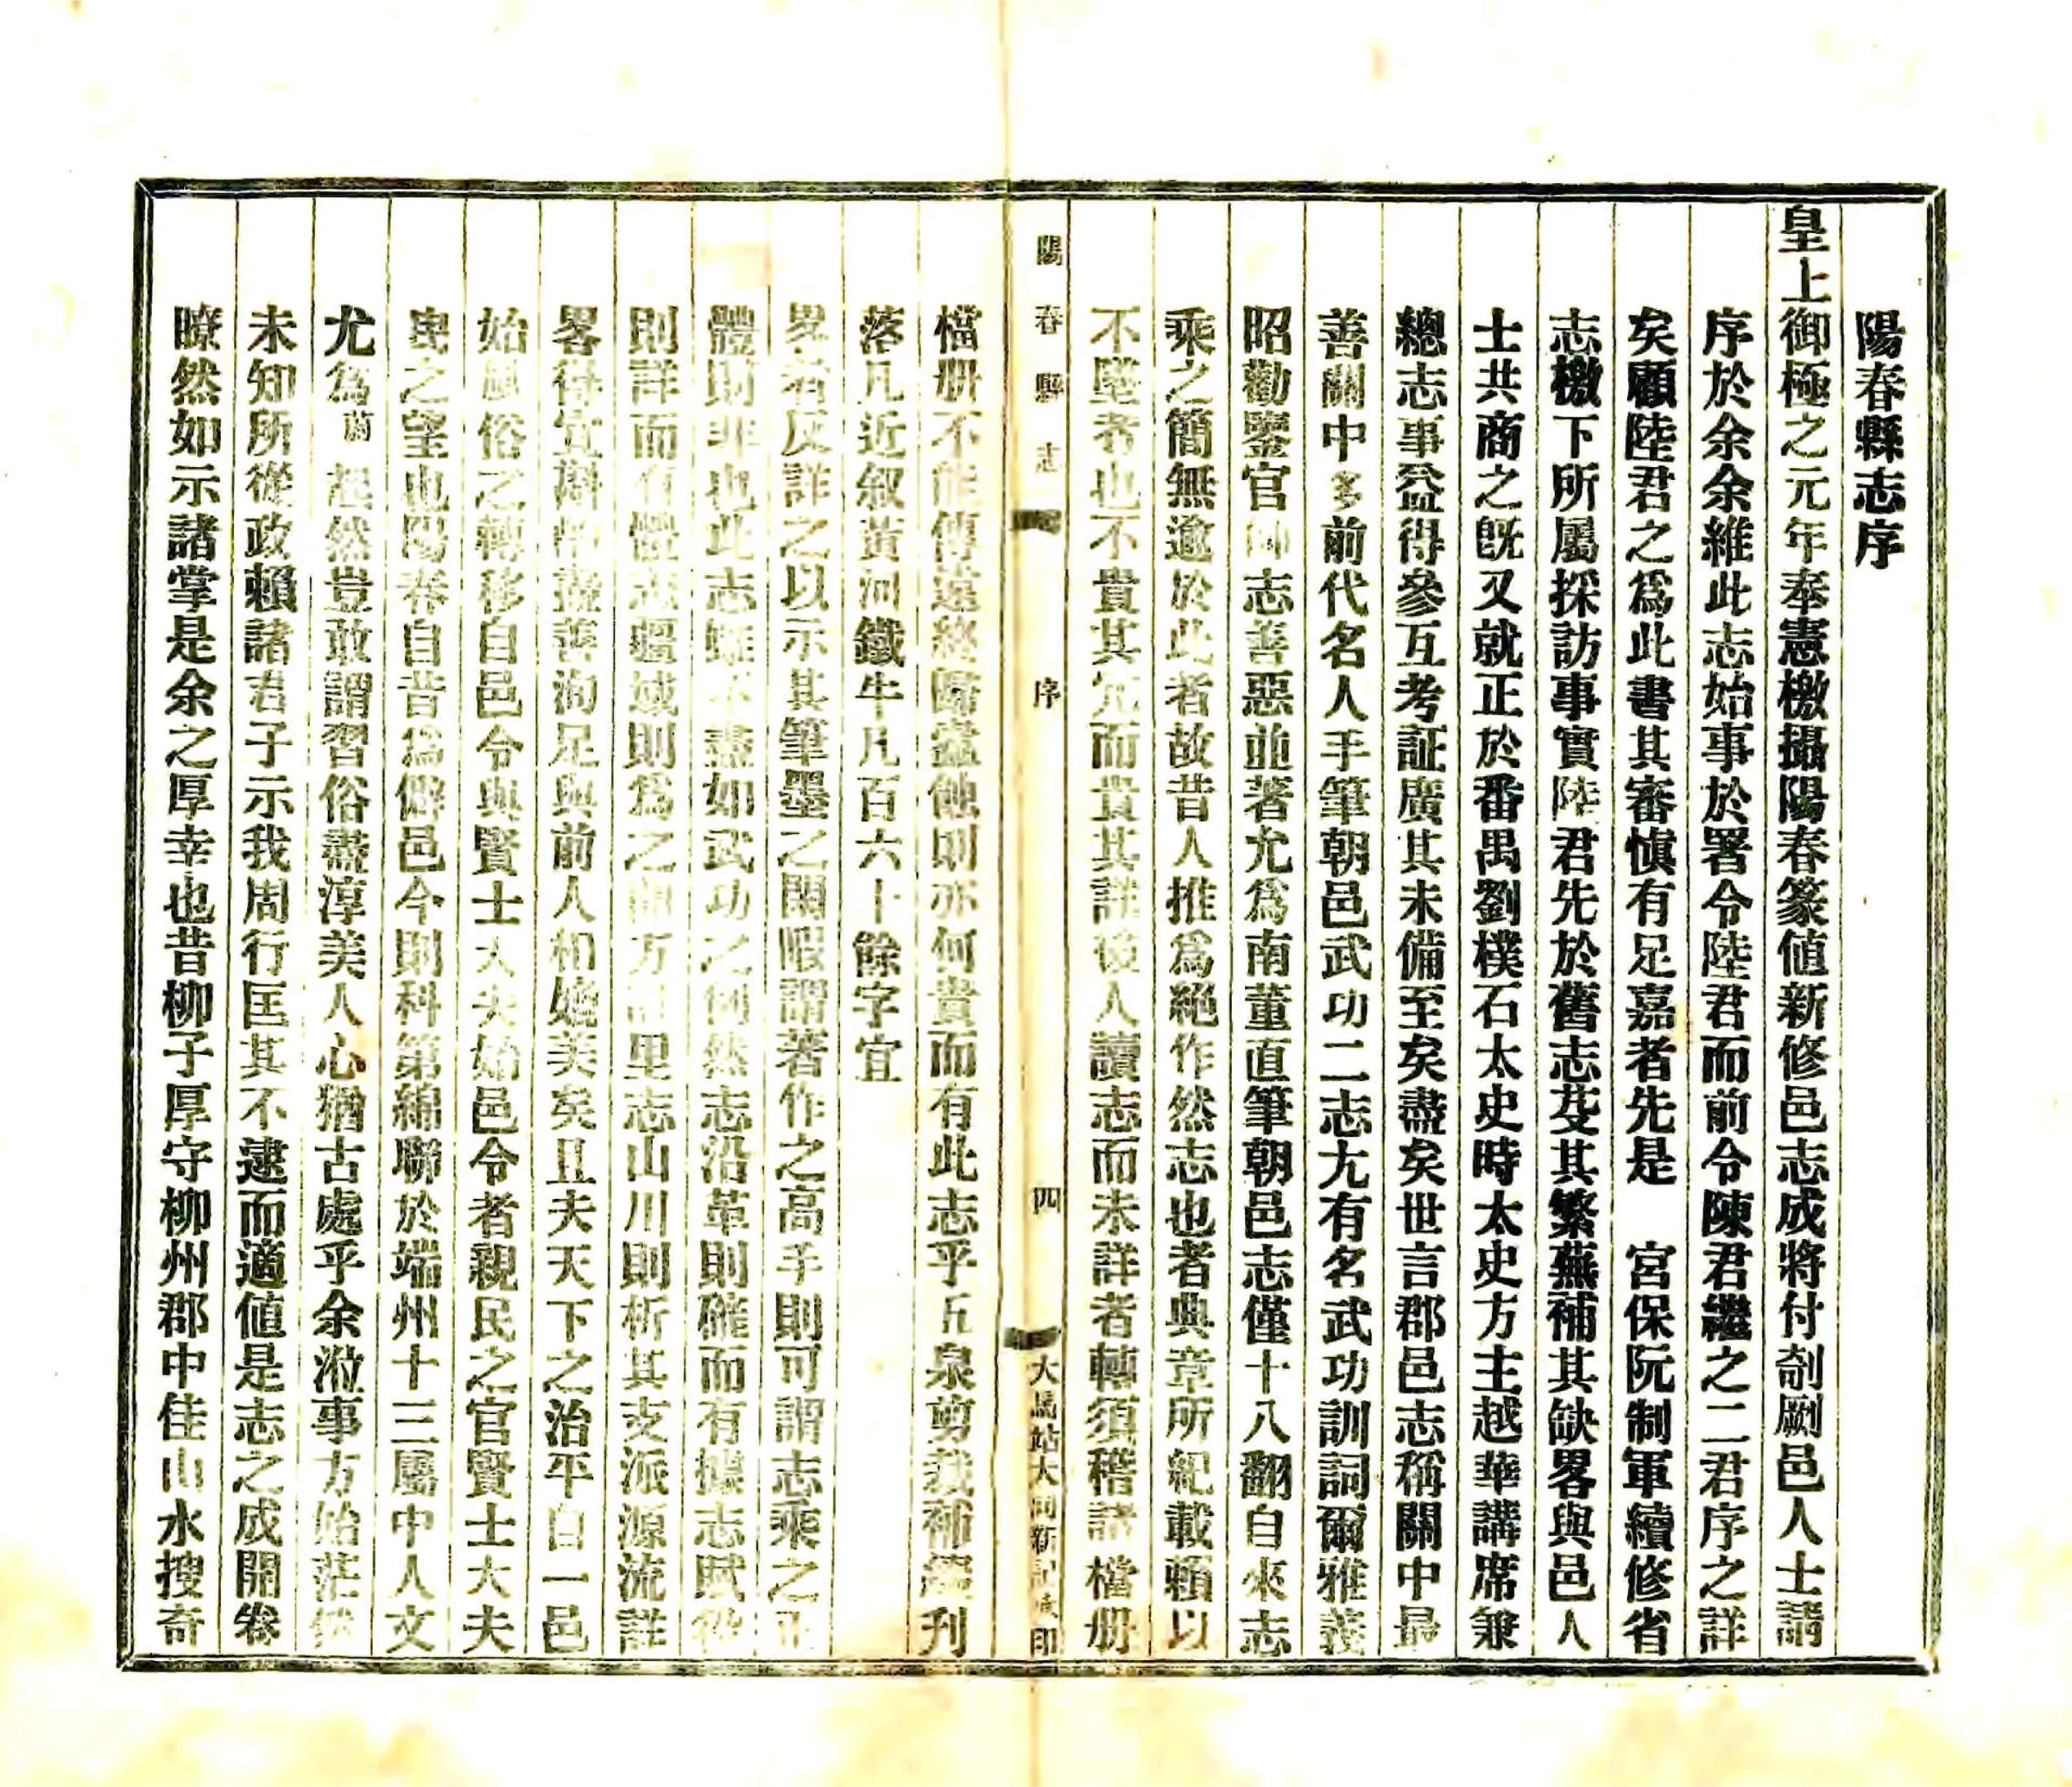 陽春縣志序
皇上御極之元年奉憲檄攝陽春篆値新修邑志成將付剞劂邑人士請
序於余余維此志始事於署令陸君而前令陳君繼之二君序之詳
矣顧陸君之爲此書其審愼有足嘉者先是　宮保阮制軍續修省
志檄下所屬採訪事實陸君先於舊志芟其繁蕪補其缺畧與邑人
士共商之旣又就正於番禺劉樸石太史時太史方主越華講席兼
總志事益得參互考証廣其未備至矣盡矣世言郡邑志稱關中最
善關中多前代名人手筆朝邑武功二志尤有名武功訓詞爾雅義
昭勸鑒官師志善惡並著允爲南董直筆朝邑志僅十八翻自來志
乘之簡無逾於此者故昔人推爲絕作然志也者典章所紀載賴以
不墜者也不貴其冗而貴其詳後人讀志而未詳者轉須稽諸檔册
檔册不能傳遠終歸蠹蝕則亦何貴而有此志乎五泉剪裁補綴刋
落凡近叙黃河鐵牛凡百六十餘字宜
畧者反詳之以示其筆墨之閑暇謂著作之高手則可謂志乘之正
體則非也此志雖不盡如武功之例然志沿革則確而有據志賦役
則詳而有體志疆域則爲之開方計里志山川則析其支派源流詳
畧得宜斟酌盡善洵足與前人相媲美矣且夫天下之治平自一邑
始風俗之轉移自邑令與賢士大夫始邑令者親民之官賢士大夫
民之望也陽春自昔爲僻邑今則科第綿聯於端州十三屬中人文
尤爲蔚起然豈敢謂習俗盡淳美人心猶古處乎余涖事方始茫然
未知所從政賴諸君子示我周行匡其不逮而適値是志之成開卷
瞭然如示諸掌是余之厚幸也昔柳子厚守柳州郡中佳山水搜奇
陽春縣志
序
四
大馬站大同新記承印